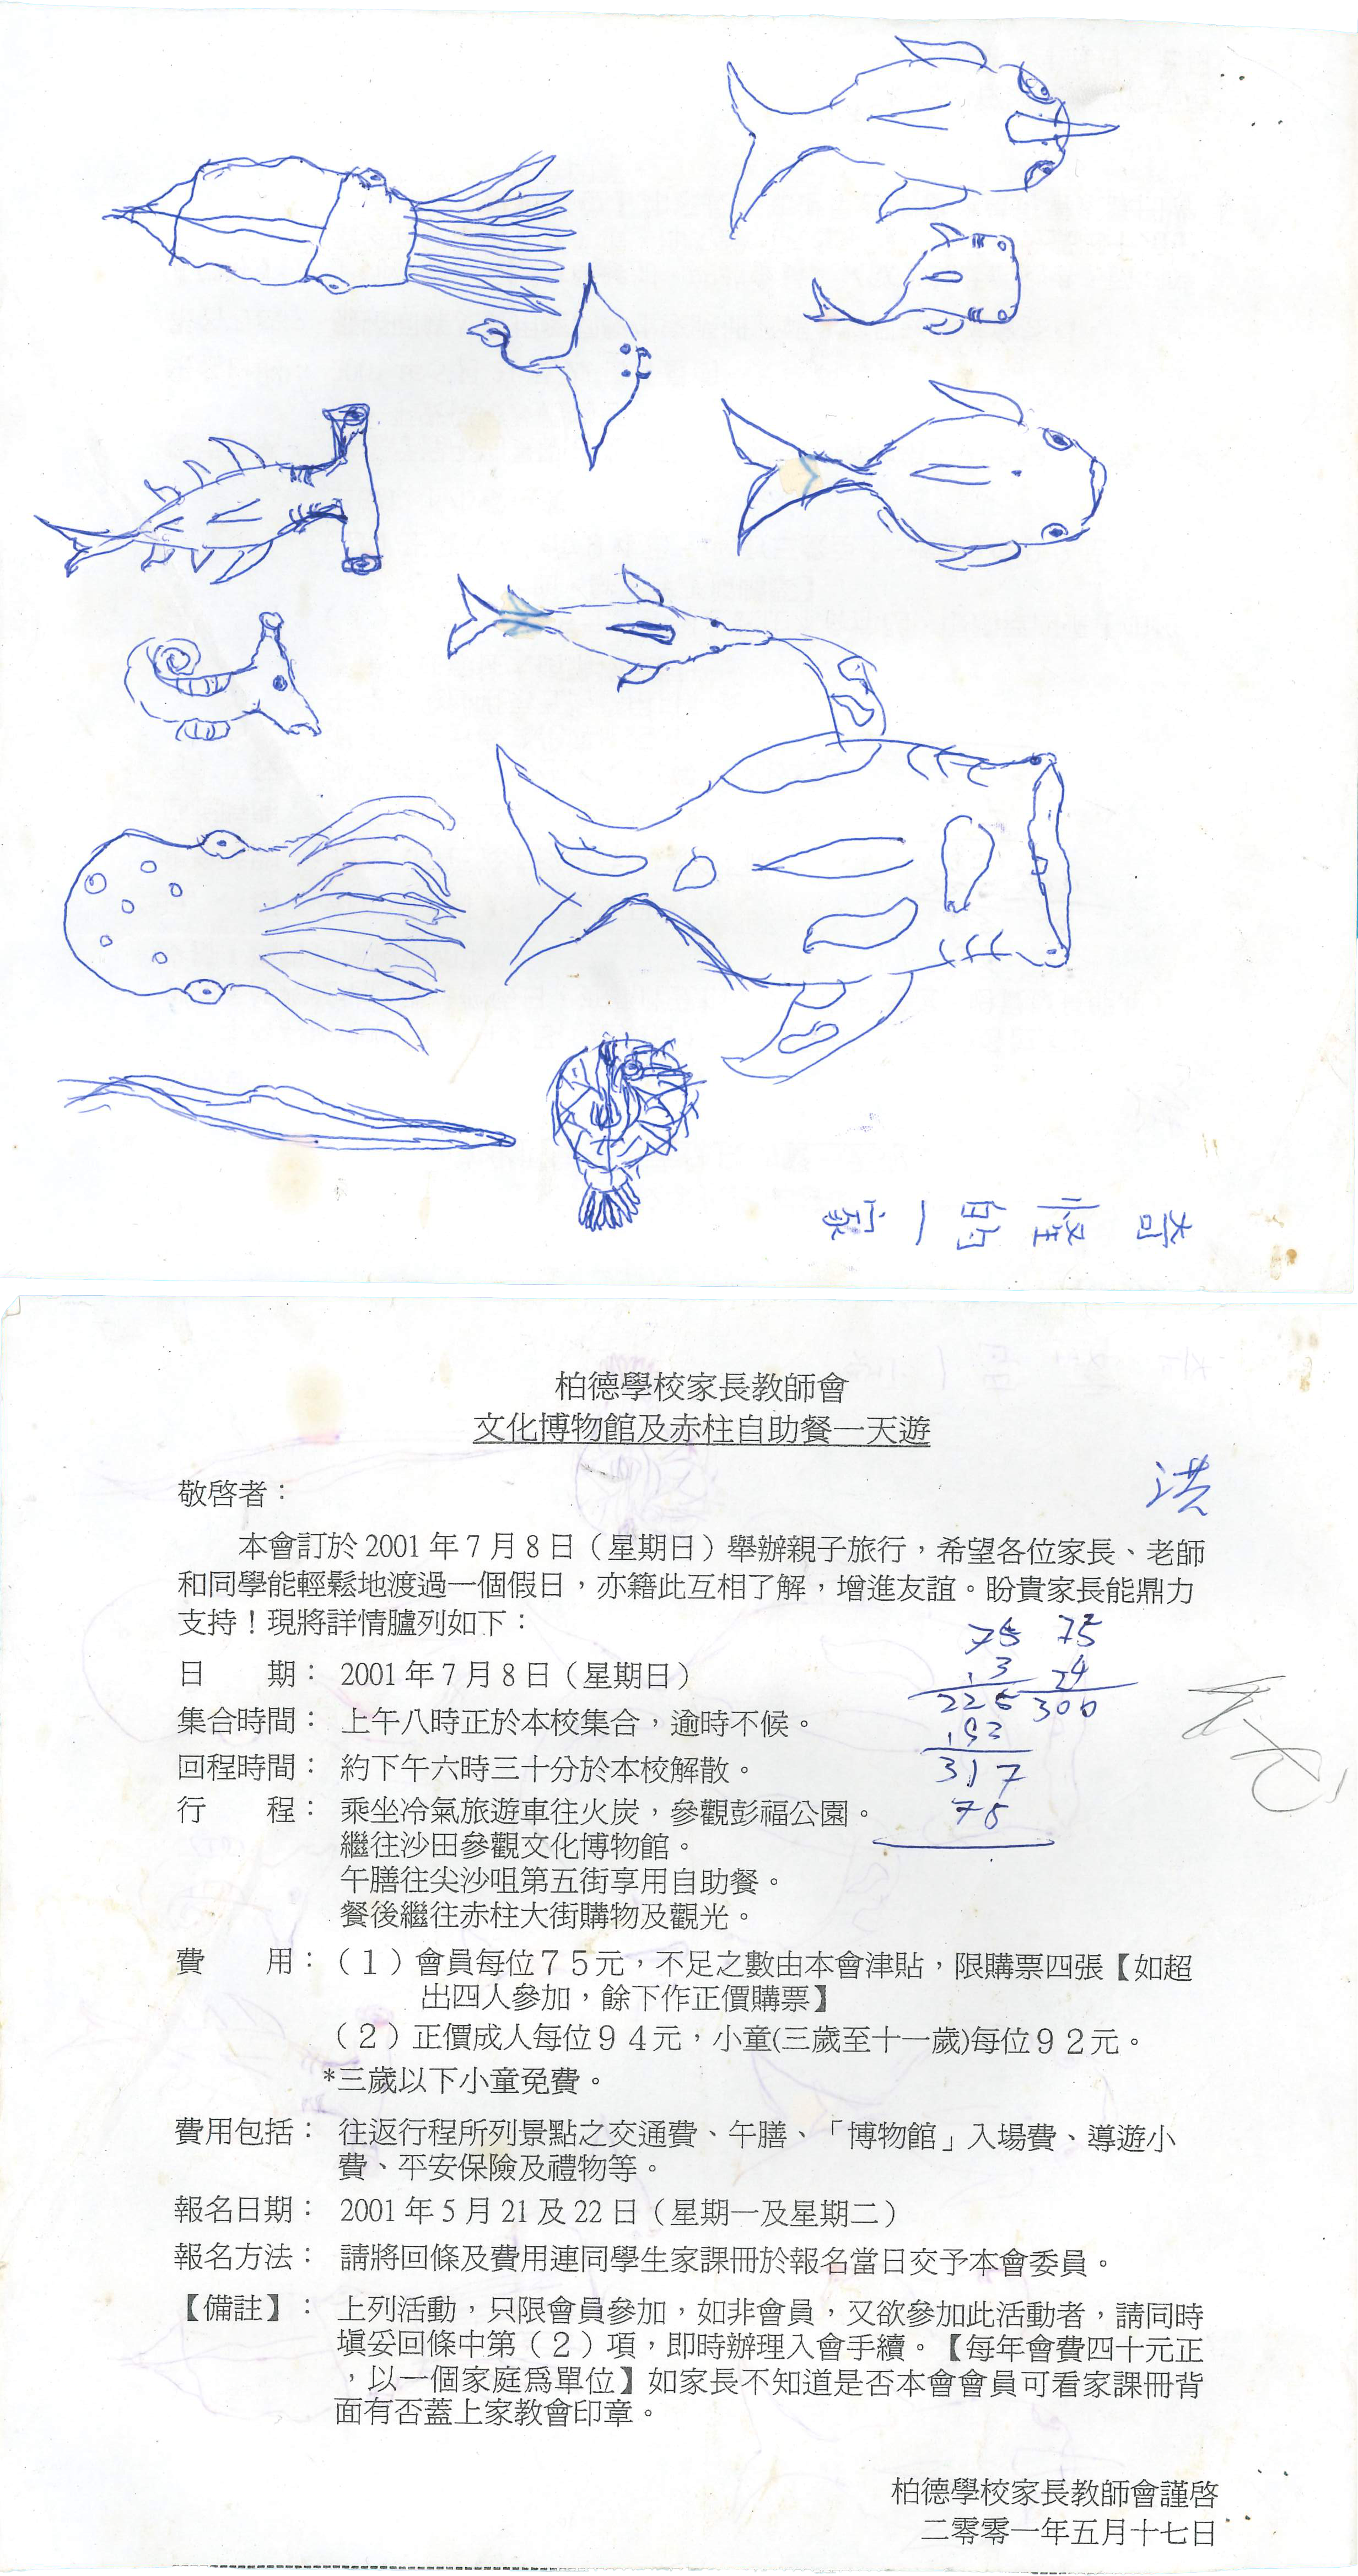 奇怪的一家
柏德學校家長教師會
文化博物館及赤柱自助餐一天遊
洪
敬啓者：
本會訂於 2001 年 7 月 8 日（星期日）舉辦親子旅行，希望各位家長、老師
和同學能輕鬆地渡過一個假日，亦籍此互相了解，增進友誼。盼貴家長能鼎力
支持！現將詳情臚列如下：
75 75
3 24
225 300
192
317
75
日　　期： 2001 年 7 月 8 日（星期日）
集合時間： 上午八時正於本校集合，逾時不候。
回程時間： 約下午六時三十分於本校解散。
行　　程： 乘坐冷氣旅遊車往火炭，參觀彭福公園。
繼往沙田參觀文化博物館。
午膳往尖沙咀第五街享用自助餐。
餐後繼往赤柱大街購物及觀光。
費　　用：（１）會員每位７５元，不足之數由本會津貼，限購票四張【如超
出四人參加，餘下作正價購票】
（２）正價成人每位９４元，小童(三歲至十一歲)每位９２元。
*三歲以下小童免費。
費用包括： 往返行程所列景點之交通費、午膳、「博物館」入場費、導遊小
費、平安保險及禮物等。
報名日期： 2001 年 5 月 21 及 22 日（星期一及星期二）
報名方法： 請將回條及費用連同學生家課冊於報名當日交予本會委員。
【備註】： 上列活動，只限會員參加，如非會員，又欲參加此活動者，請同時
塡妥回條中第（２）項，即時辦理入會手續。【每年會費四十元正
，以一個家庭爲單位】如家長不知道是否本會會員可看家課冊背
面有否蓋上家教會印章。
柏德學校家長教師會謹啓
二零零一年五月十七日